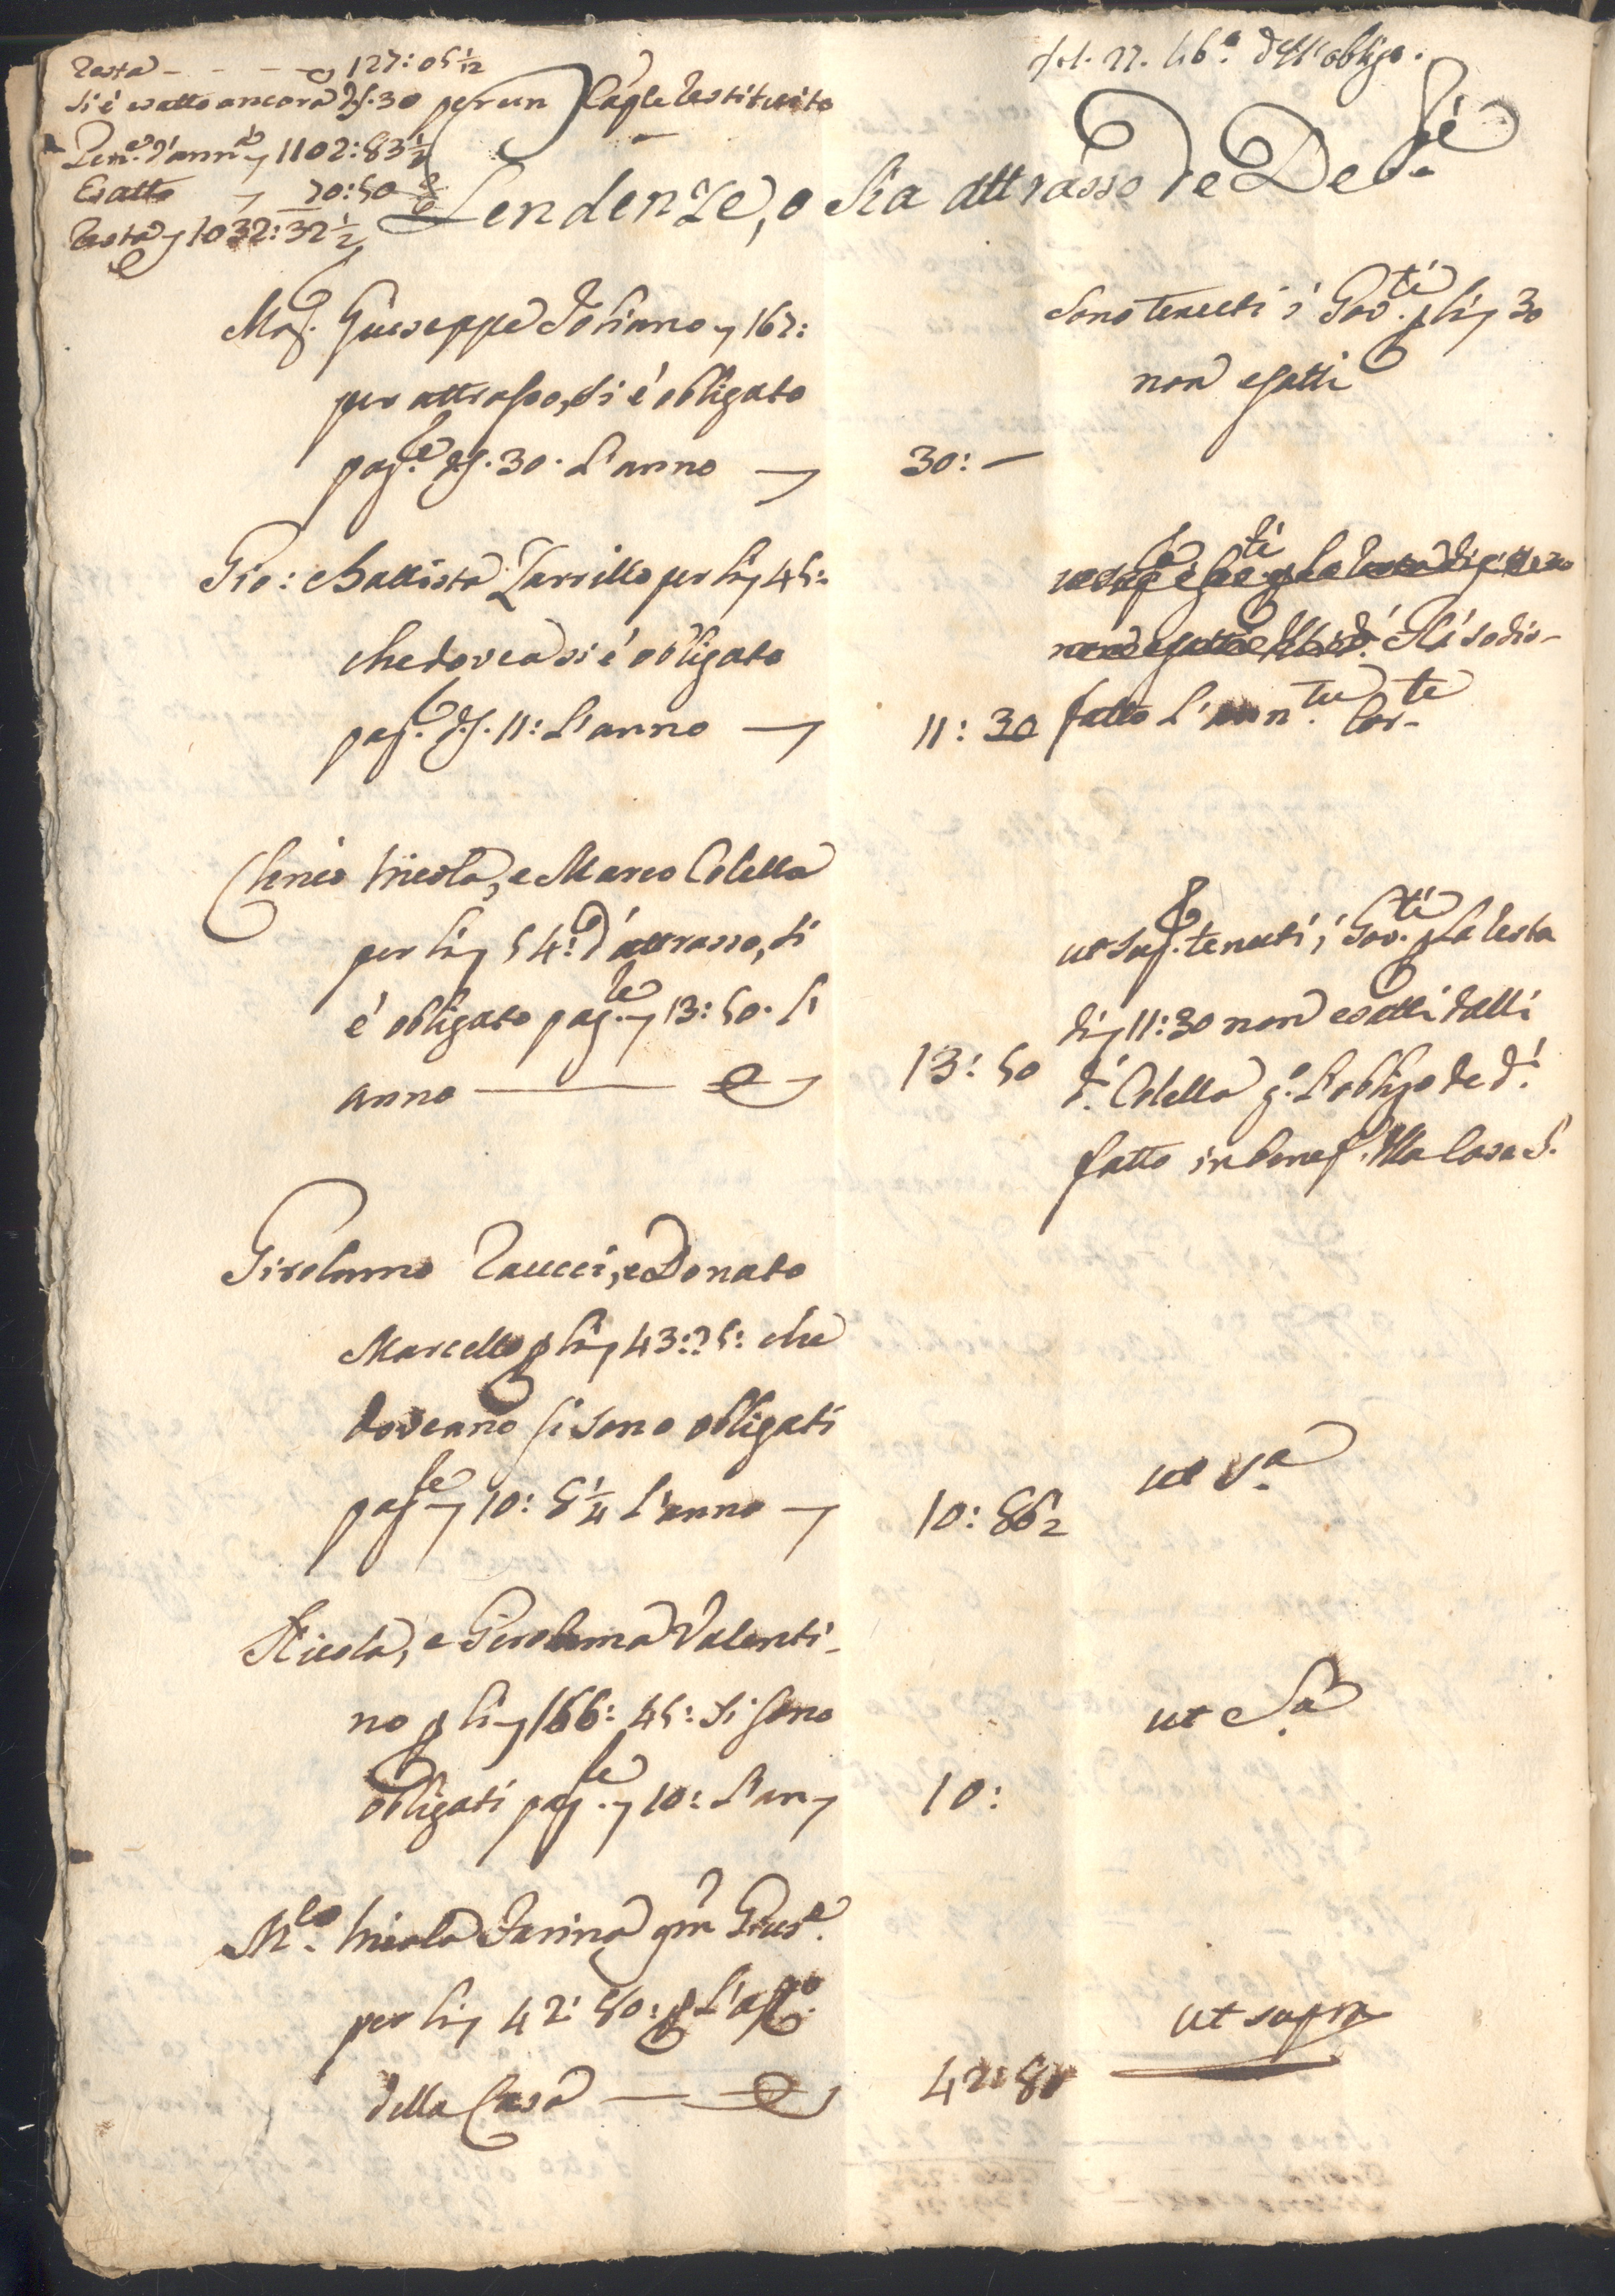 Resta - - - 127:05 1/12
Si è esatto ancora d. 30 per un Cap.le restituito
Pen.e d'ann.e 1102:83 1/2
Esatto 70:50
Resta 1032:32 1/2
fol. 27. lib.o dell'obligo.
Pendenze, o sia attrasso de De.ri
Mag. Giuseppe Foliano 162:
per attrasso, si è obligato
pag.le d. 30. l'anno
30: —
Sono tenuti i Gov.ti p li 30
non esatti
Gio: Battista Zarrillo per li 45:
che dovea si è obligato
pag.le d. 11: l'anno
11: 30
Già sodis-
fatto l'
Nicola, e Marco Colella
per li 54: d'attrasso, si
è obligato pag.le 13: 50. l'
anno
13: 50
ut sup. tenuti i Gov.ti p la resta
di 11:30 non esatti dalli
d.i Colella p. l'obligo de d.i
fatto in benef. della Casa S.
Girolamo Taucci, e Donato
Marcello p li 43:25: che
doveano si sono obligati
pag.le 10: 8 1/4 l'anno
10: 86 2
ut s.a
Nicola, e Girolama Valenti-
no p li 166: 45: si sono
obligati pag.le 10: l'an
10:
ut S.a
M.co Nicola Farina qm Gius.e
per li 42: 80: p l'aff.o
della Casa
42: 80
ut supra